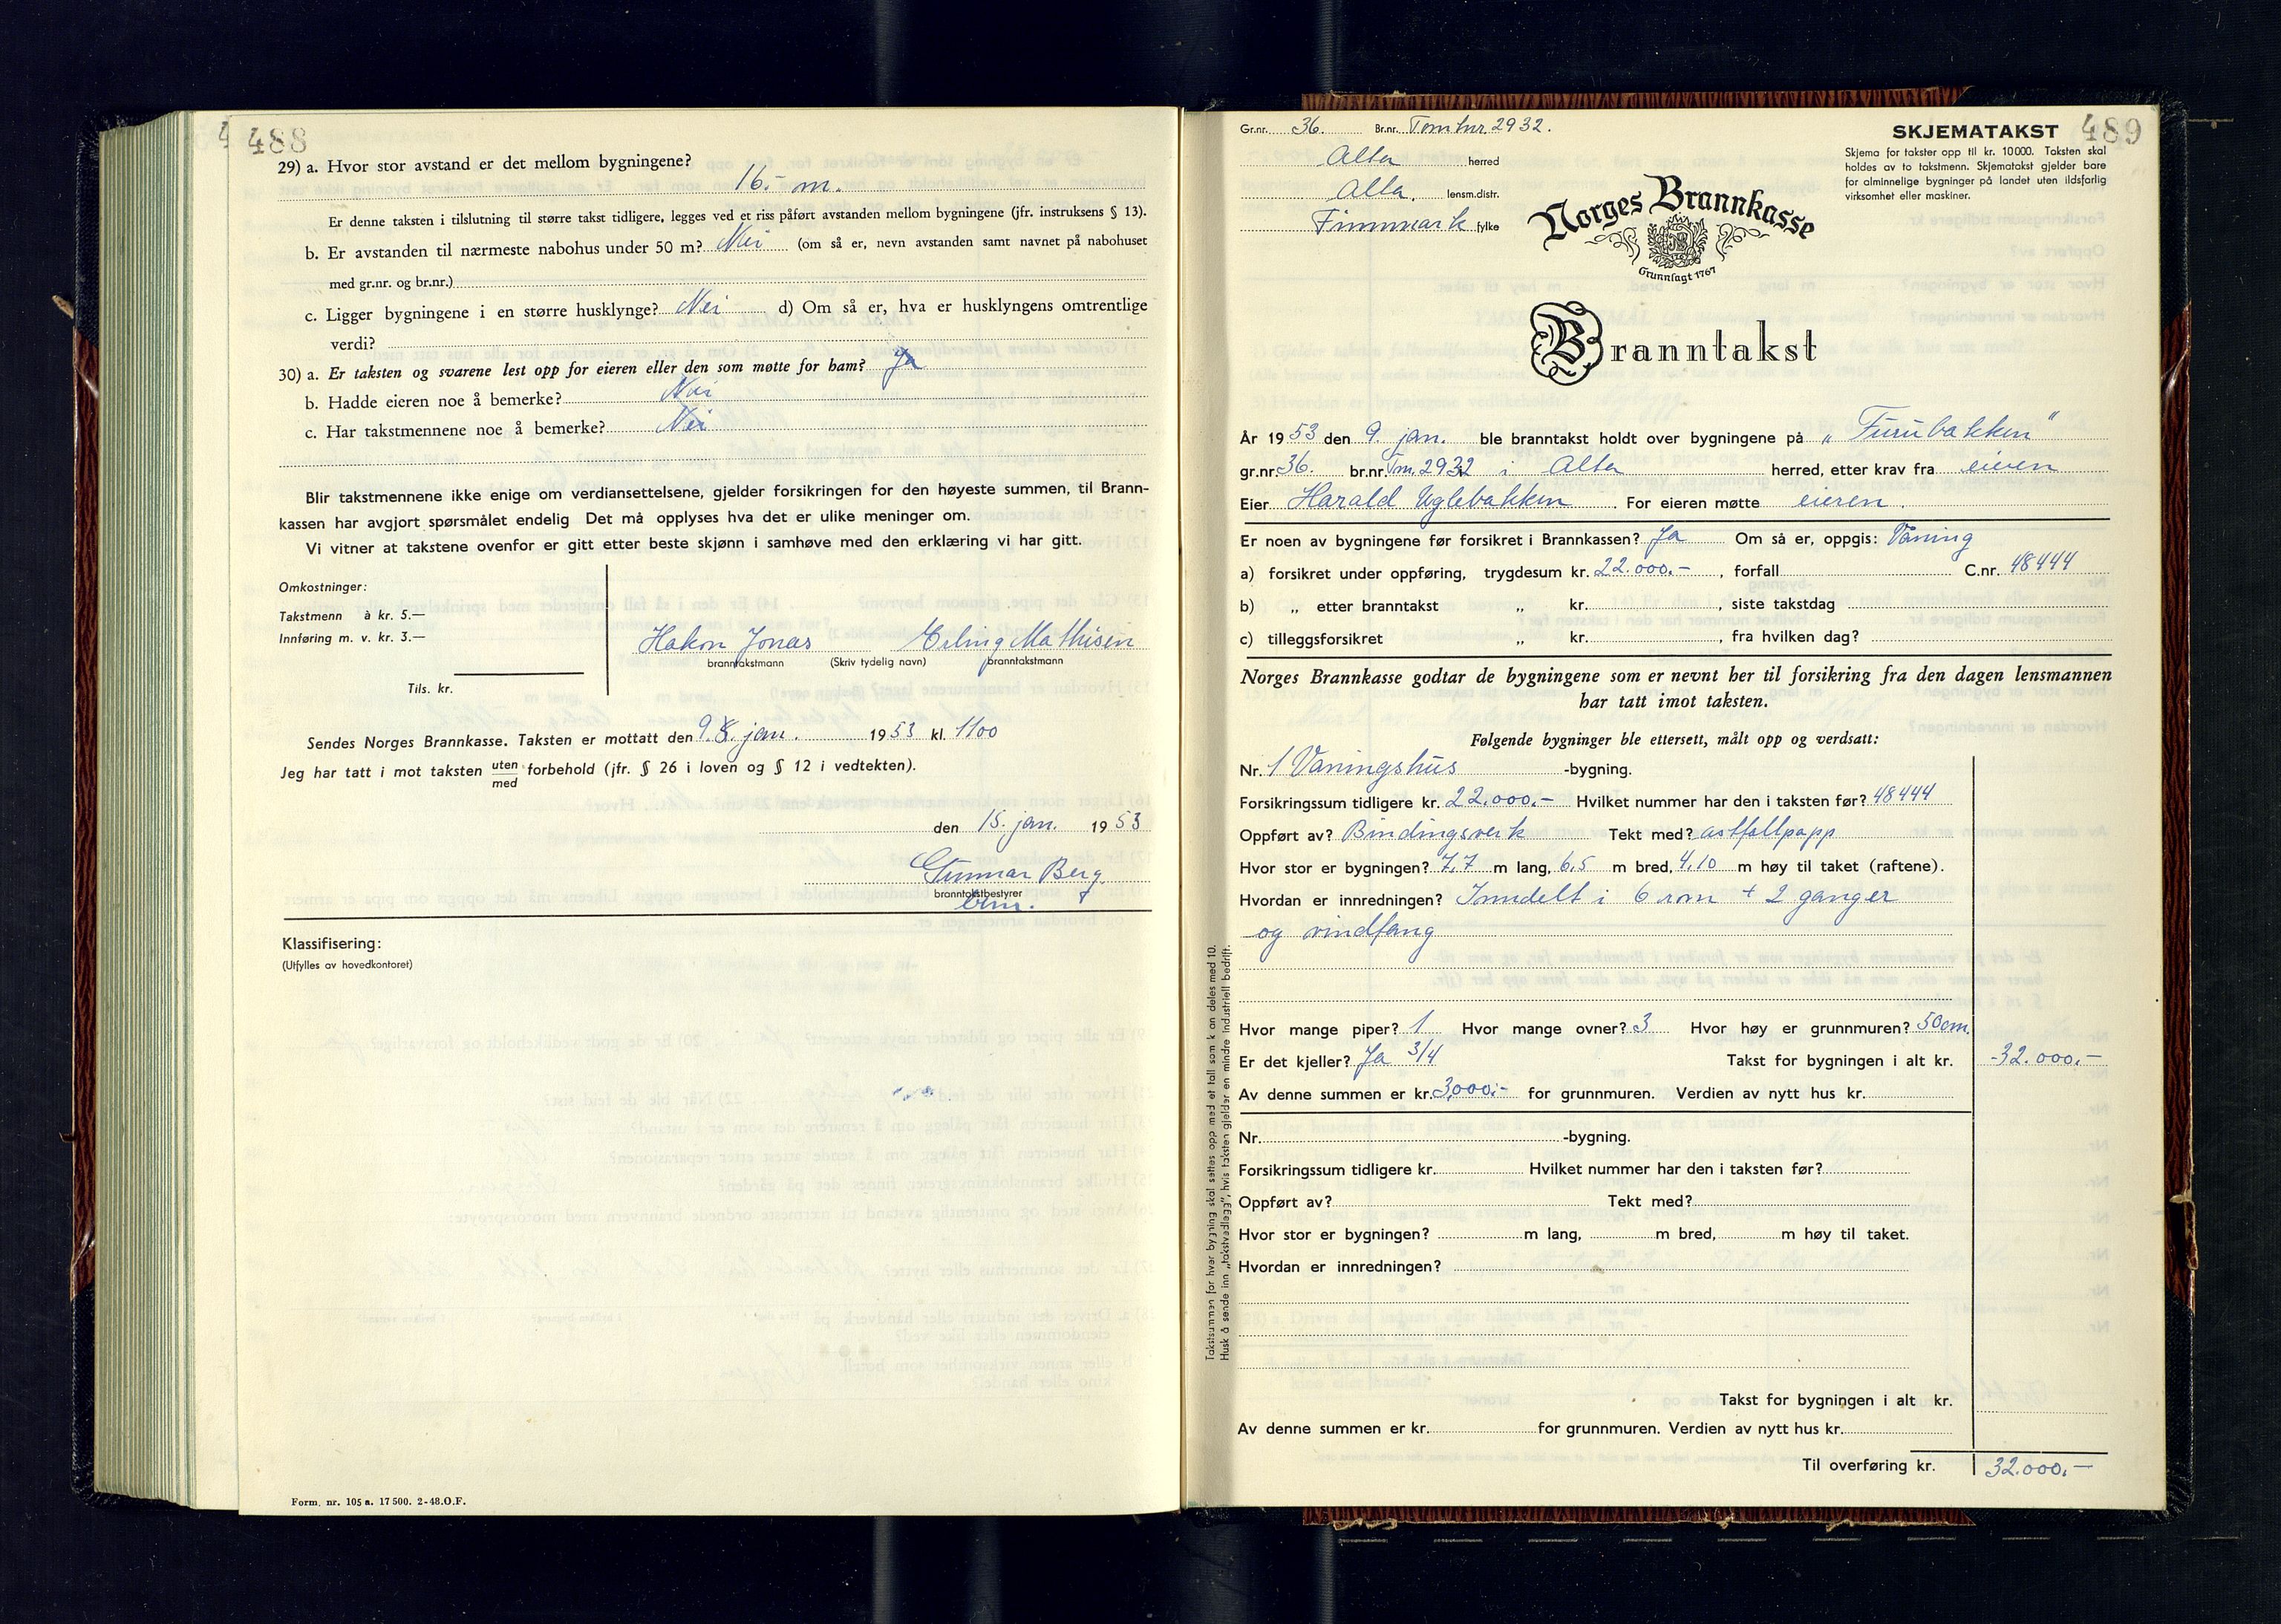 488
29) a. Hvor stor avstand er det mellom bygningene?
16.- m.
Er denne taksten i tilslutning til større takst tidligere, legges ved et riss påført avstanden mellom bygningene (jfr. instruksens § 13).
b. Er avstanden til nærmeste nabohus under 50 m? Nei (om så er, nevn avstanden samt navnet på nabohuset
med gr.nr. og br.nr.)
c. Ligger bygningene i en større husklynge? Nei d) Om så er, hva er husklyngens omtrentlige
verdi?
30) a. Er taksten og svarene lest opp for eieren eller den som møtte for ham? Ja
b. Hadde eieren noe å bemerke? Nei
c. Har takstmennene noe å bemerke? Nei
Blir takstmennene ikke enige om verdiansettelsene, gjelder forsikringen for den høyeste summen, til Brann-
kassen har avgjort spørsmålet endelig Det må opplyses hva det er ulike meninger om.
Vi vitner at takstene ovenfor er gitt etter beste skjønn i samhøve med den erklæring vi har gitt.
Omkostninger:
Takstmenn à kr. 5.—
Innføring m. v. kr. 3.—
Tils. kr.
Hakon Jonas Erling Mathisen
branntakstmann (Skriv tydelig navn) branntakstmann
Sendes Norges Brannkasse. Taksten er mottatt den 9. jan. 1953 kl. 1100
Jeg har tatt i mot taksten uten forbehold (jfr. § 26 i loven og § 12 i vedtekten).
med
den 15. jan. 1953
Gunnar Berg
branntakstbestyrer
Klassifisering:
(Utfylles av hovedkontoret)
Form. nr. 105 a. 17 500. 2-48. O.F.
Gr.nr. 36. Br.nr. Tomtnr 2932.
SKJEMATAKST 489
Skjema for takster opp til kr. 10 000. Taksten skal
holdes av to takstmenn. Skjematakst gjelder bare
for alminnelige bygninger på landet uten ildsfarlig
virksomhet eller maskiner.
Alta herred
Alta. lensm.distr.
Finnmark fylke
Norges Brannkasse
Grunnlagt 1767
Branntakst
År 1953 den 9. jan. ble branntakst holdt over bygningene på „Furubakken"
gr.nr 36. br.nr. Tm. 2932 i Alta herred, etter krav fra eieren
Eier Harald Uglebakken . For eieren møtte eieren.
Er noen av bygningene før forsikret i Brannkassen? Ja Om så er, oppgis: Våning
a) forsikret under oppføring, trygdesum kr. 22.000.- , forfall C.nr. 48444
b) „ etter branntakst „ kr. , siste takstdag
c) tilleggsforsikret „ kr. , fra hvilken dag?
Norges Brannkasse godtar de bygningene som er nevnt her til forsikring fra den dagen lensmannen
har tatt imot taksten.
Følgende bygninger ble ettersett, målt opp og verdsatt:
Nr. 1 Våningshus -bygning.
Forsikringssum tidligere kr. 22.000.- Hvilket nummer har den i taksten før? 48444
Oppført av? Bindingsverk Tekt med? astfaltpapp
Hvor stor er bygningen? 7,7 m lang, 6,5 m bred, 4,10 m høy til taket (raftene).
Hvordan er innredningen? Inndelt i 6 rom + 2 ganger
og vindfang
Hvor mange piper? 1 Hvor mange ovner? 3 Hvor høy er grunnmuren? 50cm.
Er det kjeller? Ja 3/4 Takst for bygningen i alt kr. 32.000.-
Av denne summen er kr. 3.000.- for grunnmuren. Verdien av nytt hus kr.
Nr. -bygning.
Forsikringssum tidligere kr. Hvilket nummer har den i taksten før?
Oppført av? Tekt med?
Hvor stor er bygningen? m lang, m bred, m høy til taket.
Hvordan er innredningen?
Takst for bygningen i alt kr.
Av denne summen er kr. for grunnmuren. Verdien av nytt hus kr.
Til overføring kr. 32.000.-
Takstsummen for hver bygning skal settes opp med et tall som k an deles med 10.
Husk å sende inn „takstvedlegg", hvis taksten gjelder en mindre industriell bedrift.